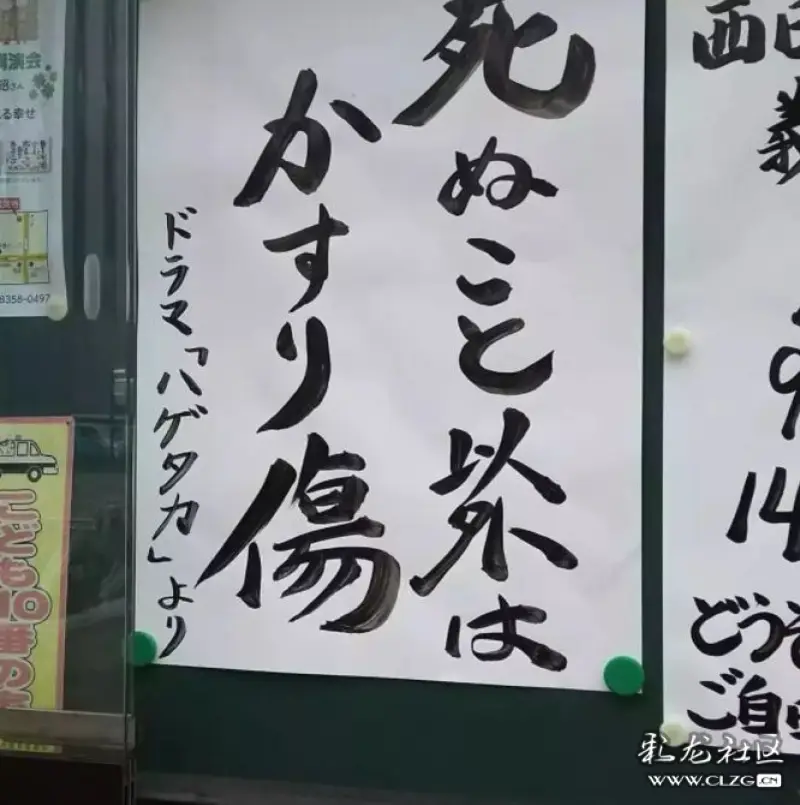 死ぬこと以外は
かすり傷
ドラマ「ハゲタカ」より
演会
る幸せ
8358-0497
こども110番の
西
義
9
14
どうぞ
ご自
彩龙社区
WWW.CLZG.CN